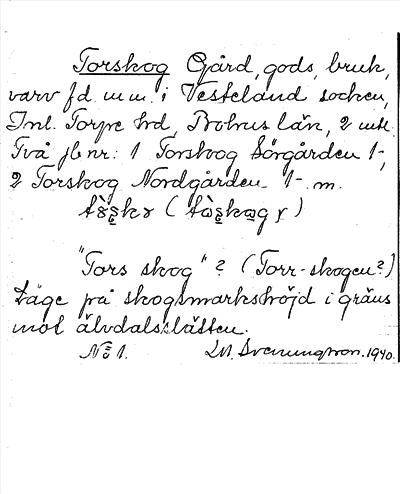 Torskog Gård, gods, bruk,
varv fd. m.m. i Västerland socken,
Inl. Torpe hd, Bohus län, 2 mtl.
Två jb nr: 1 Torskog Sörgården 1-,
2 Torskog Nordgården 1- m.
"Tors skog"? (Torr-skogen?)
Läge på skogsmarkshöjd i gräns
mot älvdalsslätten.
No 1. Svenungsson. 1940.